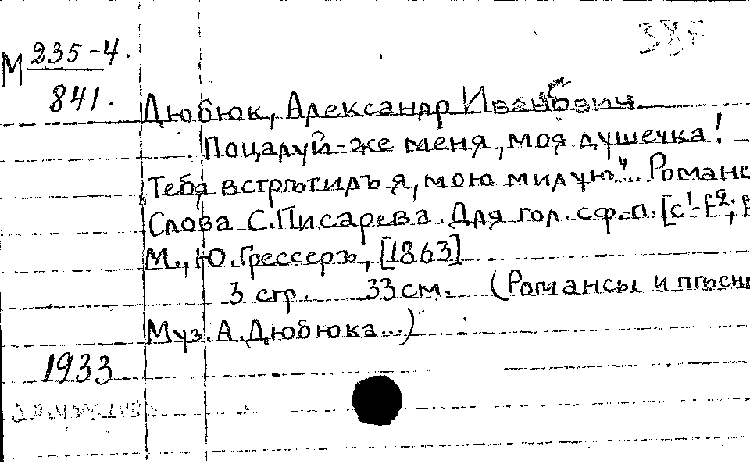 М 235-4.
841.
387
Дюбюк, Александр Иванович
Поцалуй-же меня, моя душечка!
"Тебя встрѣтилъ я, мою милую". Романс
Слова С. Писарева. Для гол. с ф.-п. [c¹-f²;
М., Ю. Грессеръ, [1863]
3 стр. 33 см. (Романсы и пѣсни
Муз. А. Дюбюка...)
1933